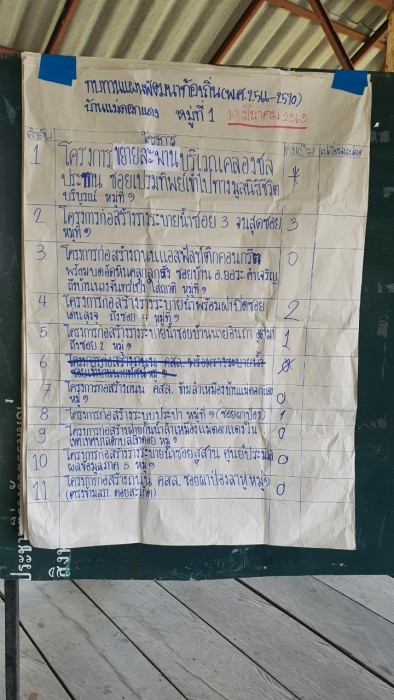 ทบทวนแผนพัฒนาท้องถิ่น (พ.ศ.2566-2570)
บ้านแม่ดอกแดง หมู่ที่ 1 19 มีนาคม 2568
ลำดับ โครงการ
1 โครงการขยายสะพานบริเวณคลองชล
ประทาน ซอยเปรมทิพย์เข้าไปทางมูลนิธิชีวิต *
บริบูรณ์ หมู่ที่ ๑
2 โครงการก่อสร้างรางระบายน้ำซอย 3 จนสุดซอย 3
หมู่ที่ ๑
3 โครงการก่อสร้างถนนแอสฟัลท์ติกคอนกรีต 0
พร้อมบดอัดหินคลุกลูกรัง ซอยบ้าน
หมู่ที่ ๑
4 โครงการก่อสร้างรางระบายน้ำพร้อมฝาปิดซอย 2
ถึงซอย 4 หมู่ที่ ๑
5 โครงการก่อสร้างรางระบายน้ำซอยบ้านนายอินถา 1
ถึงซอย 2 หมู่ ๑
6 โครงการก่อสร้างถนน คสล. พร้อมรางระบายน้ำ
7 โครงการก่อสร้างถนน คสล. ริมลำเหมืองบ้านแม่ดอกแดง 0
หมู่ ๑
8 โครงการก่อสร้างระบบประปา หมู่ที่ ๑ (ซอยผาป่อง) 1
9 โครงการก่อสร้างผนังกั้นน้ำลำเหมืองแม่ดอกแดงใน 0
เขตเทศบาลตำบลเชิงดอย หมู่ ๑
10 โครงการก่อสร้างรางระบายน้ำซอยสุสาน ศูนย์ประมวล 0
ผลข้อมูลภาค ๓ หมู่ ๑
11 โครงการก่อสร้างถนน คสล. ซอยผาป่องลาหู่ หมู่ ๑ 0
(ตรงข้ามสภ. ดอยสะเก็ด)